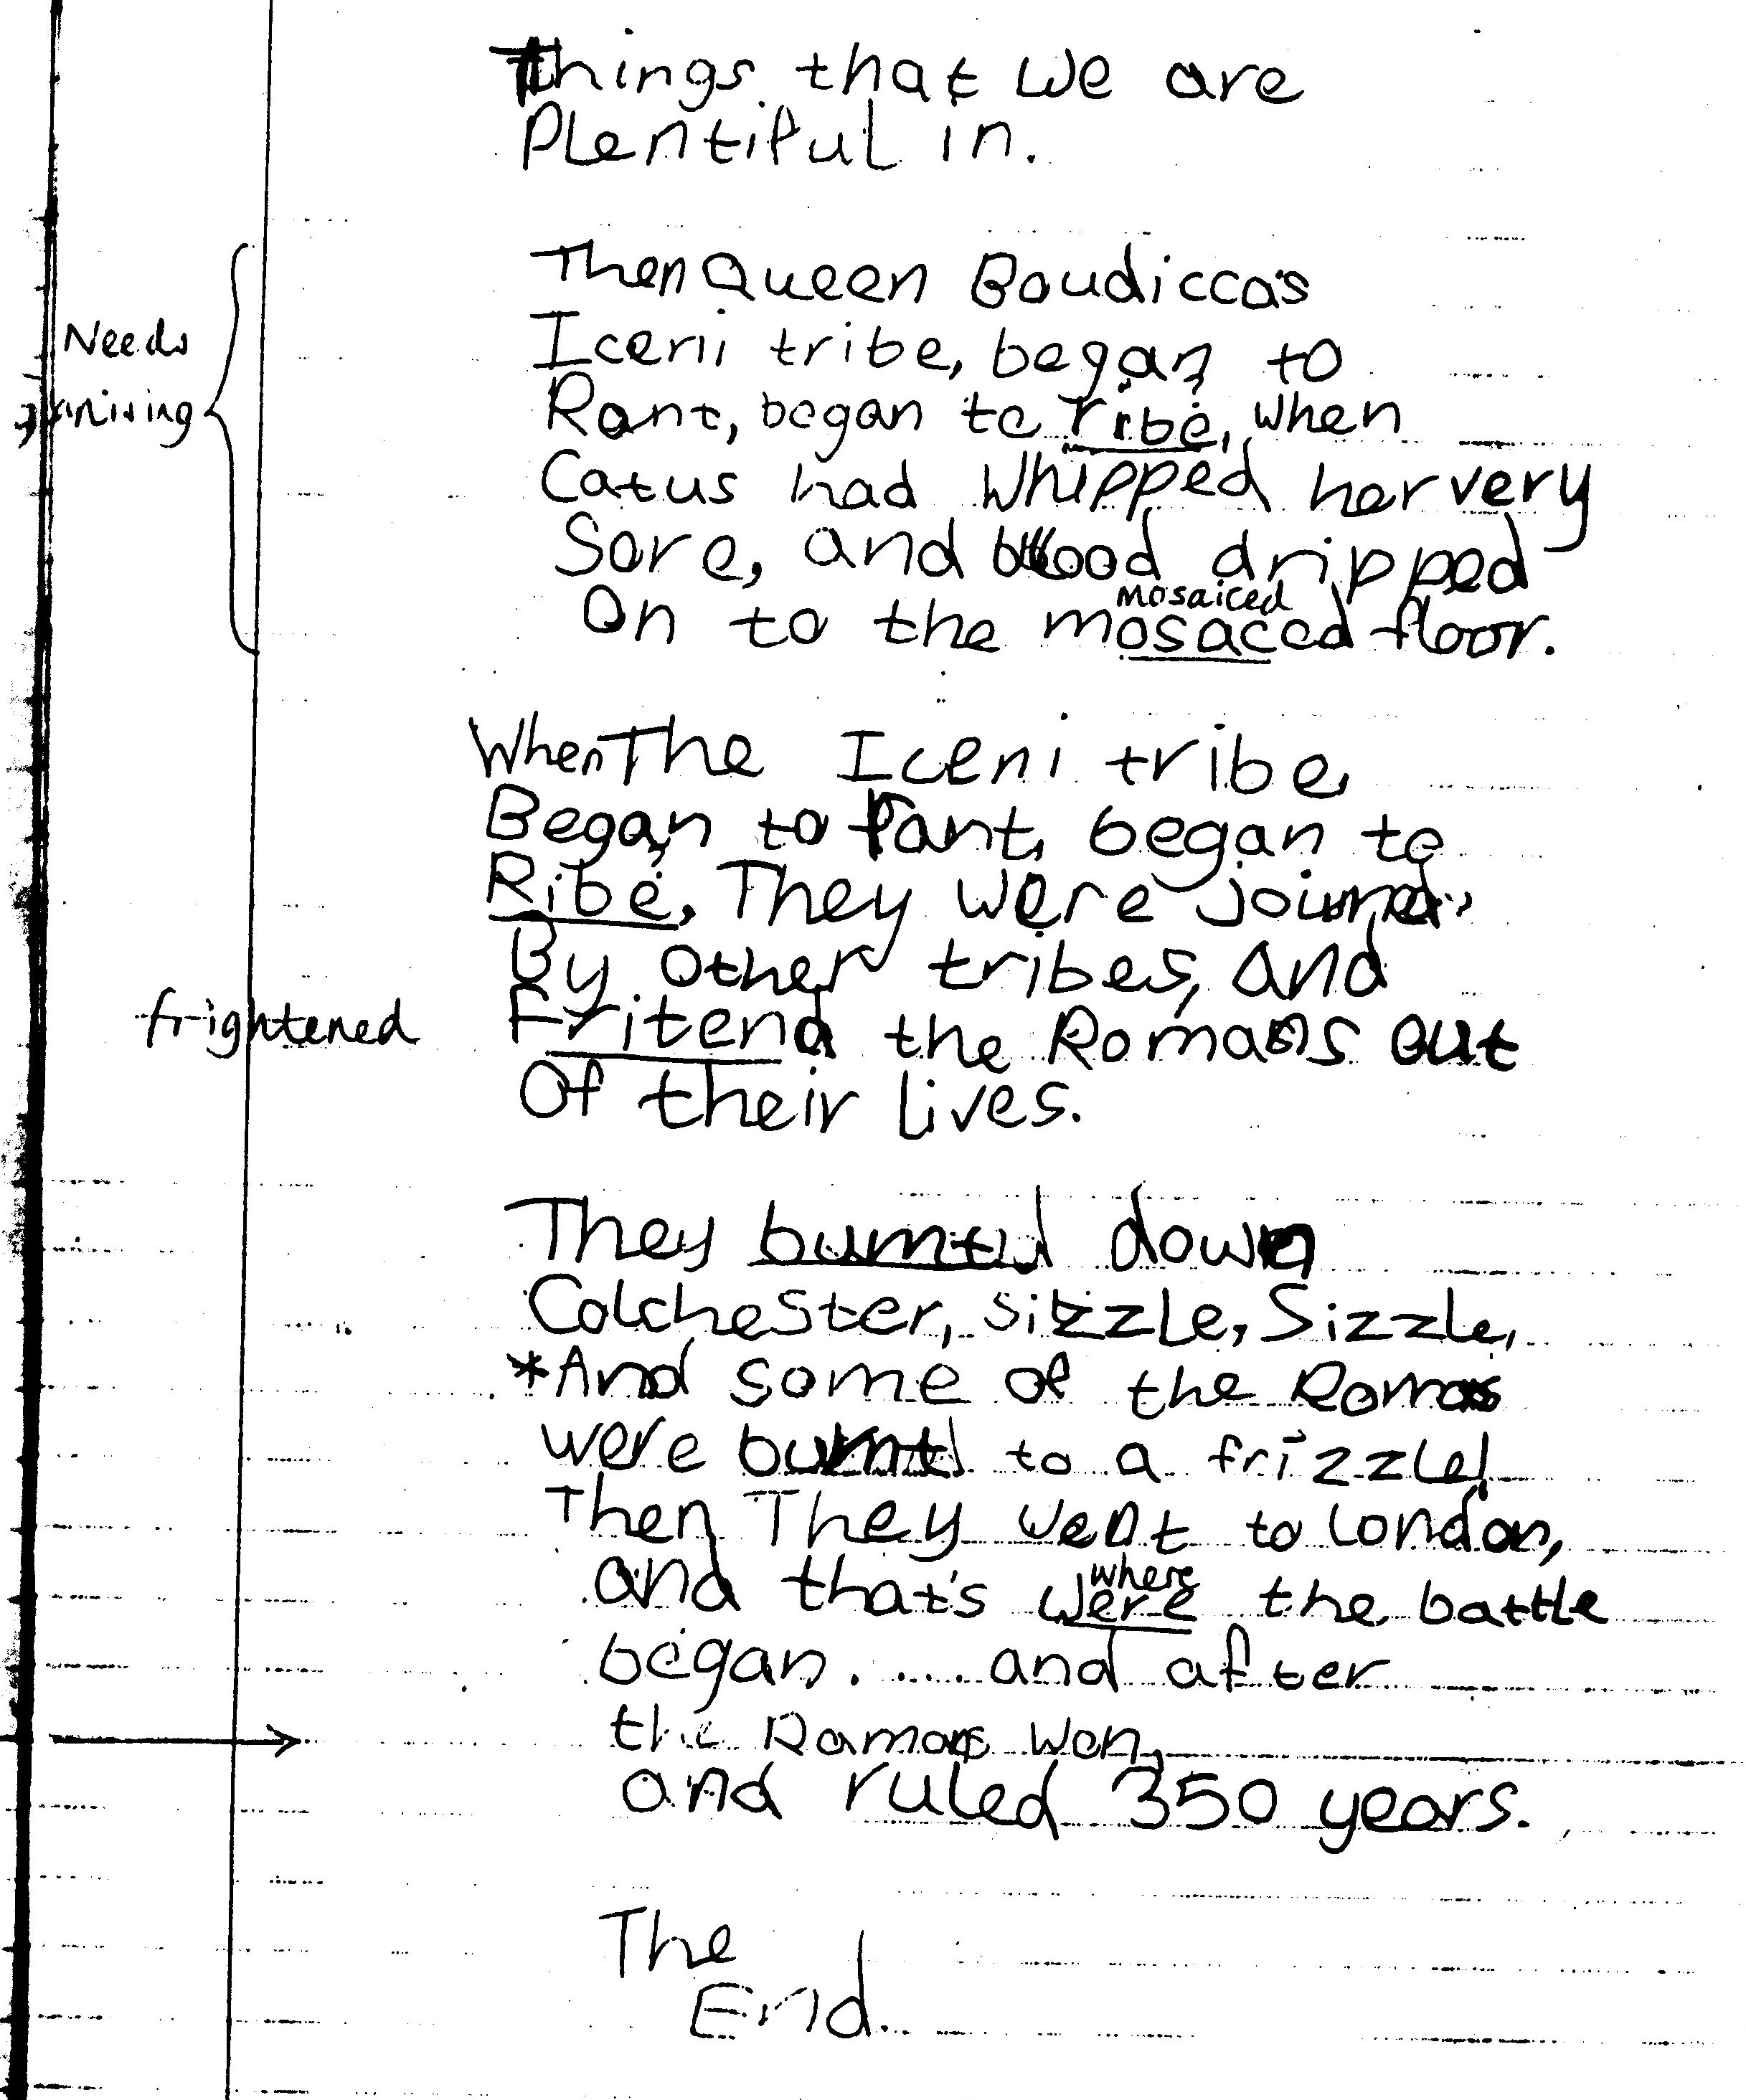 Things that we are
Plentiful in.
Then Queen Boudicca's
Iceni tribe, began to
Needs
Rant, began to ribe, when
Catus had whipped her very
Sore, and blood dripped
mosaiced
On to the mosaced floor.
When The Iceni tribe,
Began to rant, began to
Ribe, They were joined
By other tribes, and
frightened
Fritend the Romans out
Of their lives.
They burnt down
Colchester, sizzle, Sizzle,
*And some of the Romans
were burnt to a frizzle!
Then They went to London,
where
and that's were the battle
began. ..... and after
the Romans won,
and ruled 350 years.
The
End.